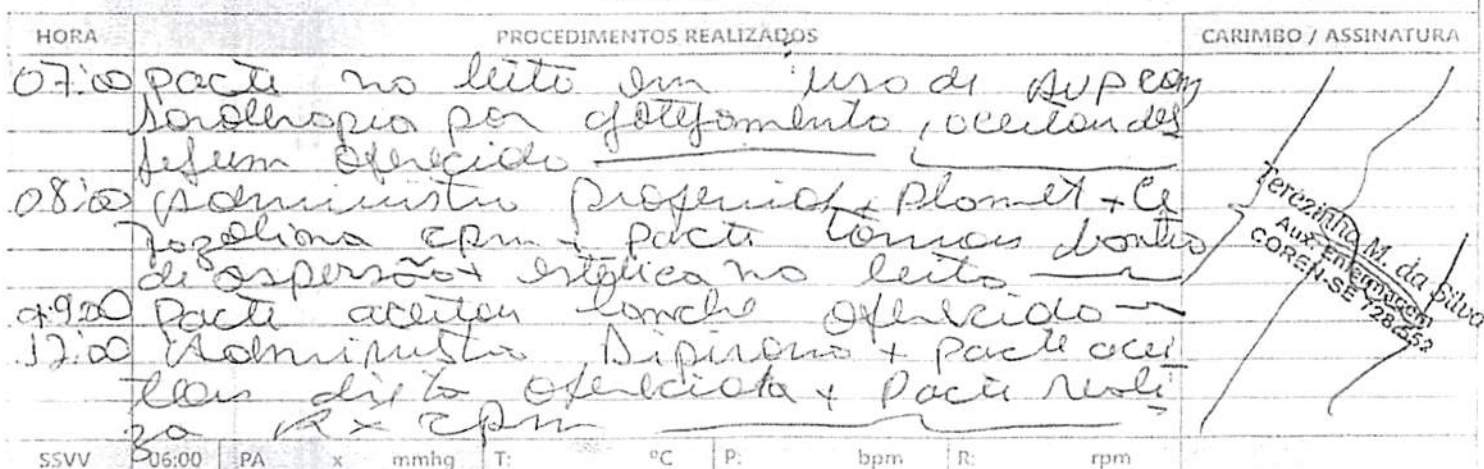 HORA PROCEDIMENTOS REALIZADOS CARIMBO / ASSINATURA
07:00 pacte no leito em uso de AVP com
soroterapia por gotejamento, aceitou des
jejum oferecido
08:00 Administro Profenid + Plamet + Ce
fazolina cpm + pacte tomou banho
de aspersão + no leito
09:00 Pacte aceitou lanche oferecido
12:00 Administro Dipirona + pacte acei
tou dieta oferecida + Pacte reali
za RX cpm
Terezinha M. da Silva
Aux. Enfermagem
COREN-SE 728.552
SSVV 06:00 PA x mmhg T: ºC P: bpm R: rpm